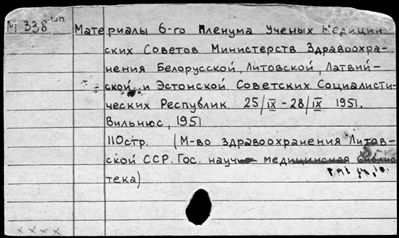 М 338 цп
Материалы 6-го Пленума Ученых Медицин
ских Советов Министерств Здравоохра-
нения Белорусской, Литовской, Латвий-
ской и Эстонской Советских Социалисти-
ческих Республик 25/IX - 28/IX 1951.
Вильнюс, 1951
110стр. (М-во здравоохранения Литов-
ской ССР. Гос. научная медицинская библио
тека)